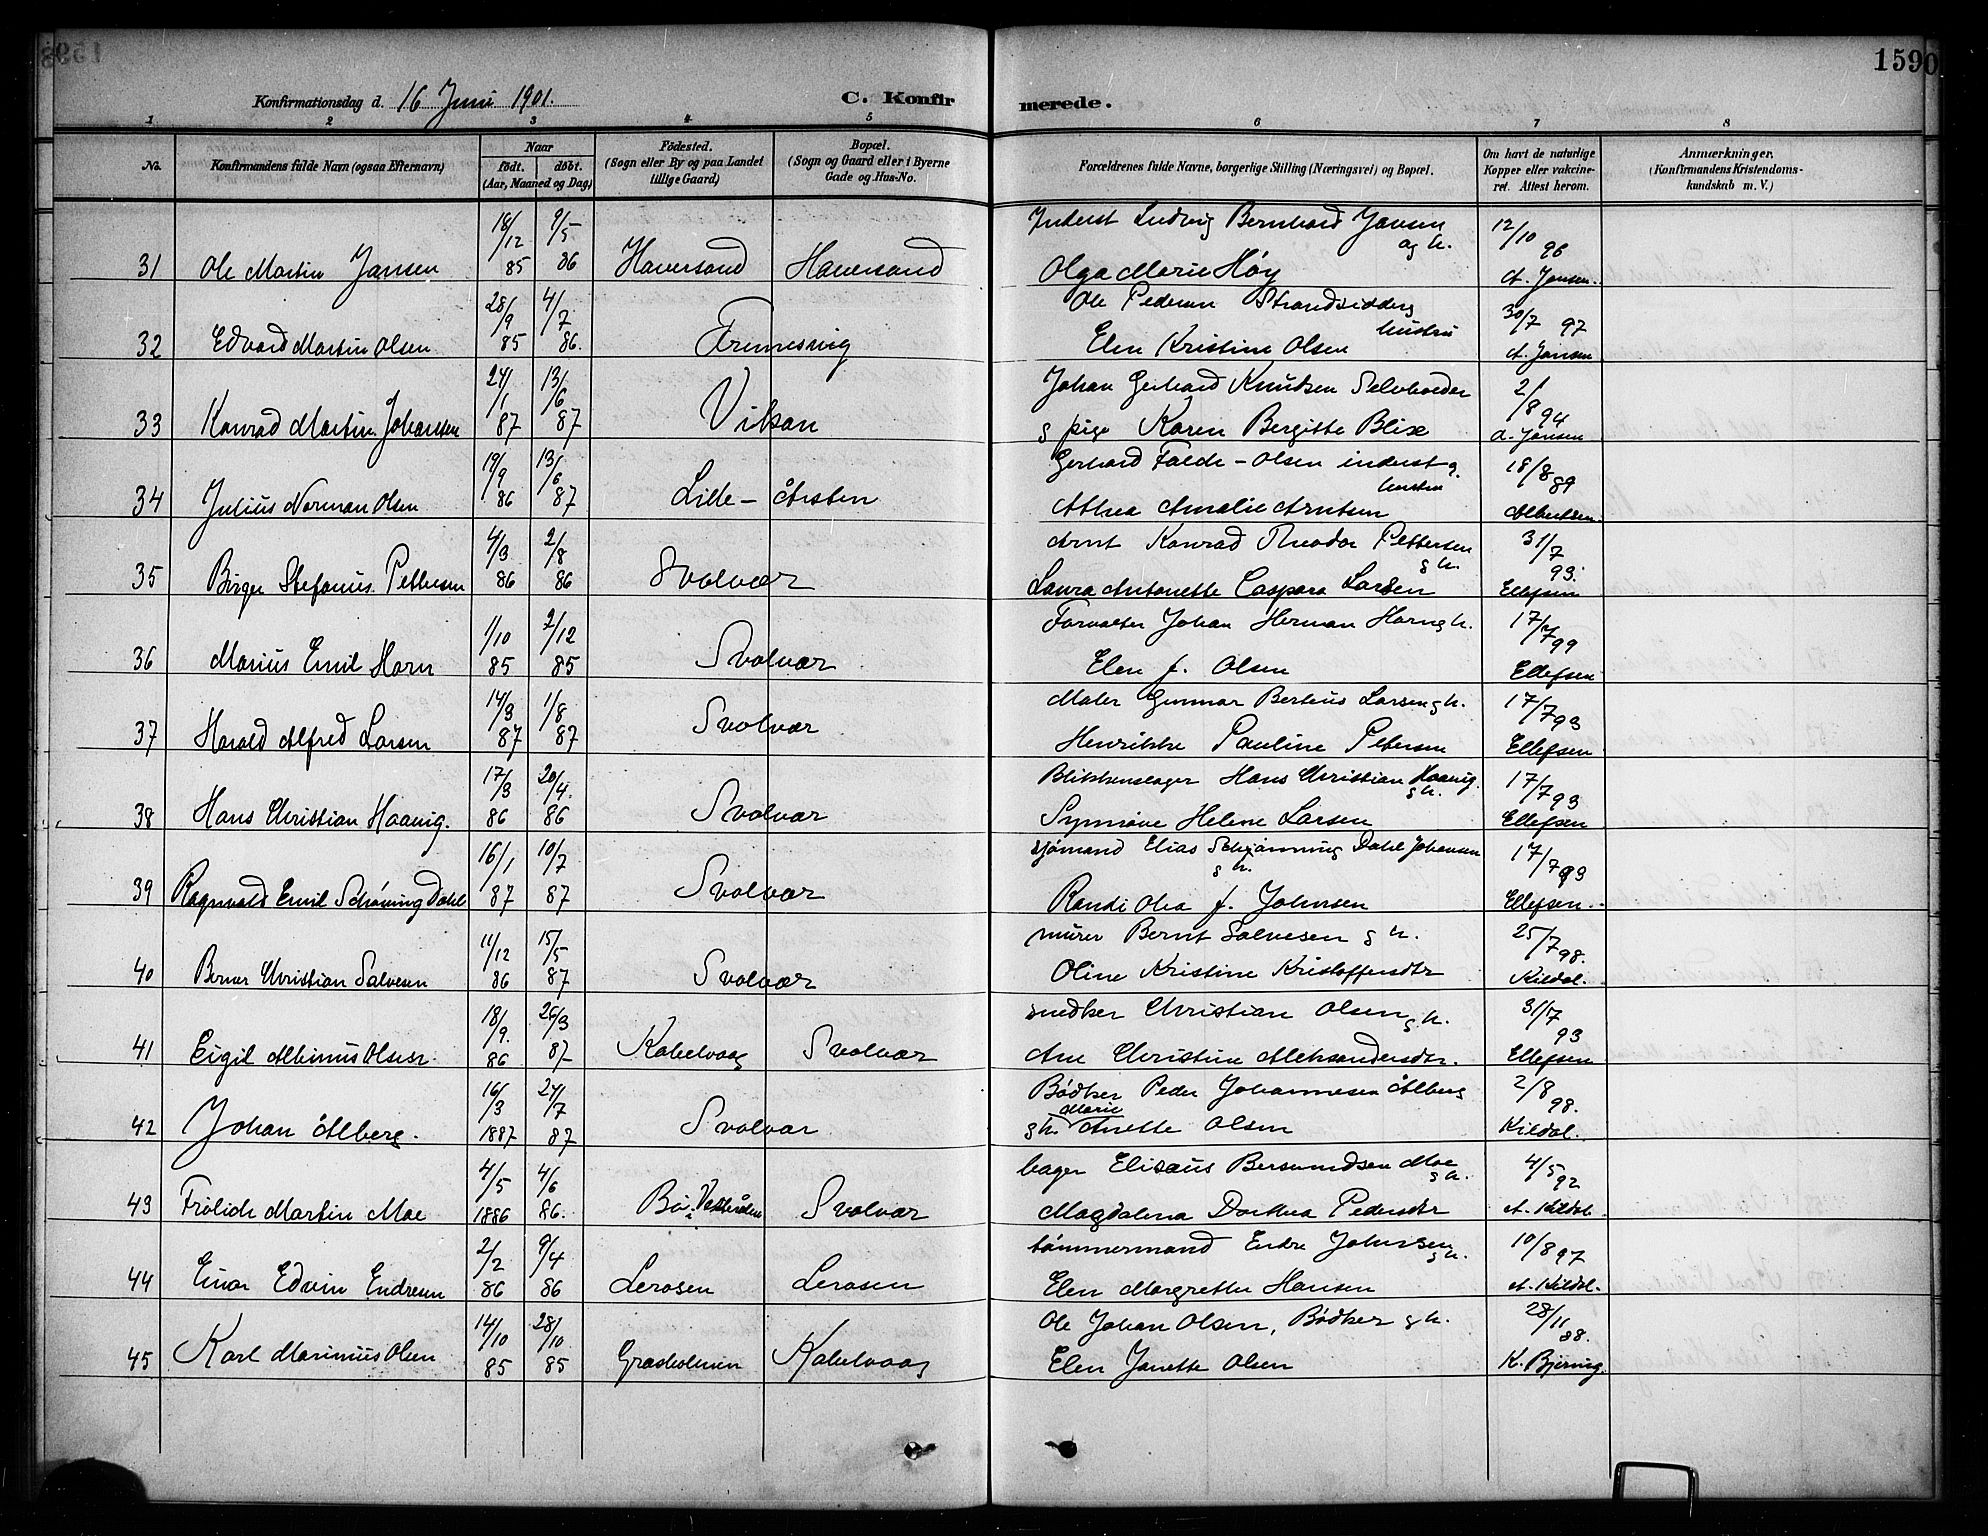 1590
Konfirmationsdag d. 16 Juni 1901.
C. Konfirmerede.
1 2 3 4 5 6 7 8
No.
Konfirmandens fulde Navn (ogsaa Efternavn)
Naar
født. døbt.
(Aar, Maaned og Dag)
Fødested.
(Sogn eller By og paa Landet
tillige Gaard)
Bopæl.
(Sogn og Gaard eller i Byerne
Gade og Hus-No.
Forældrenes fulde Navne, borgerlige Stilling (Næringsvei) og Bopæl.
Om havt de naturlige
Kopper eller vakcine-
ret. Attest herom.
Anmærkninger.
(Konfirmandens Kristendoms-
kundskab m. V.)
31 Ole Martin Jansen 18/12 85 9/5 86 Haversand Haversand
Inderst Ludvig Bernhard Jansen og h.
Olga Marie Høy
12/10 96
A. Jansen.
32 Edvard Martin Olsen 28/9 85 4/7 86.
Ole Pedersen Strandsidder g hustru
Elen Kristine Olsen
30/7 97
A. Jansen
33 Konrad Martin Johansen 24/1 87 13/6 87 Vikan
Johan Gerhard Knudsen
g pige Karen Bergitte Blix
2/8 94
A. Jansen
34 Julius Norman Olsen 19/9 86 13/6 87 Lille-
Gerhard Falde-Olsen inderst g. hustru
Amalie Arntsen
18/8 89
Albertsen.
35 Birger Stefanus Pettersen 4/3 86 2/8 86 Svolvær
Arnt Konrad Theodor Pettersen g h.
Laura Antonette Caspara Larsen
31/7 93.
Ellefsen
36 Marius Emil Horn 1/10 85 2/12 85 Svolvær
Forvalter Johan Herman Horn g h.
Elen f. Olsen
17/7 99
Ellefsen
37 Harald Alfred Larsen 14/3 87 1/8 87 Svolvær
Maler Gunnar Berteus Larsen g h.
Henrikke Pauline Petersen
17/7 93
Ellefsen
38 Hans Christian Haavig. 17/3 86 20/4. 86 Svolvær
Blikkenslager Hans Christian Haavig. g h.
Synnøve Helene Larsen
17/7 93
Ellefsen
39 Ragnvald Emil Schøning Dahl 16/1 87 10/7 87 Svolvær
sjømand Elias Schjønning Dahl Johansen g h.
Randi Olea f. Johnsen
17/7 93
Ellefsen.
40 Berner Christian Salvesen 11/12 86 15/5 87 Svolvær
murer Bernt Salvesen g h.
Oline Kristine Kristoffersdtr
25/7 98.
Kildal.
41 Eigil Albinus Olsen. 18/9. 86 26/3 87 Kabelvaag Svolvær
snedker Christian Olsen g. h.
Ane Christine Aleksandersdtr.
31/7 93
Ellefsen
42 Johan Ålberg. 16/3 1887 24/7 87 Svolvær
Bødker Peder Johannesen Ålberg
g h. Marie Anette Olsen
2/8 98.
Kildal.
43 Frölich Martin Moe 4/5 1886 4/6 86. Bø i Vesterålen Svolvær
bager Elisæus Bersvendsen Moe g h.
Magdalena Dorthea Pedersdtr
4/5 92
A. Kildal.
44 Einar Edvin Endresen 2/2 86 9/4 86 Lerosen Lerosen
tømmermand Endre Johnsen g h.
Elen Margrethe Hansen
10/8 97
A. Kildal.
45 Karl Marinius Olsen 14/10 85 28/10 85 Græsholmen Kabelvaag
Ole Johan Olsen, Bødker g h.
Elen Janette Olsen
28/11 88.
K. Bjering.